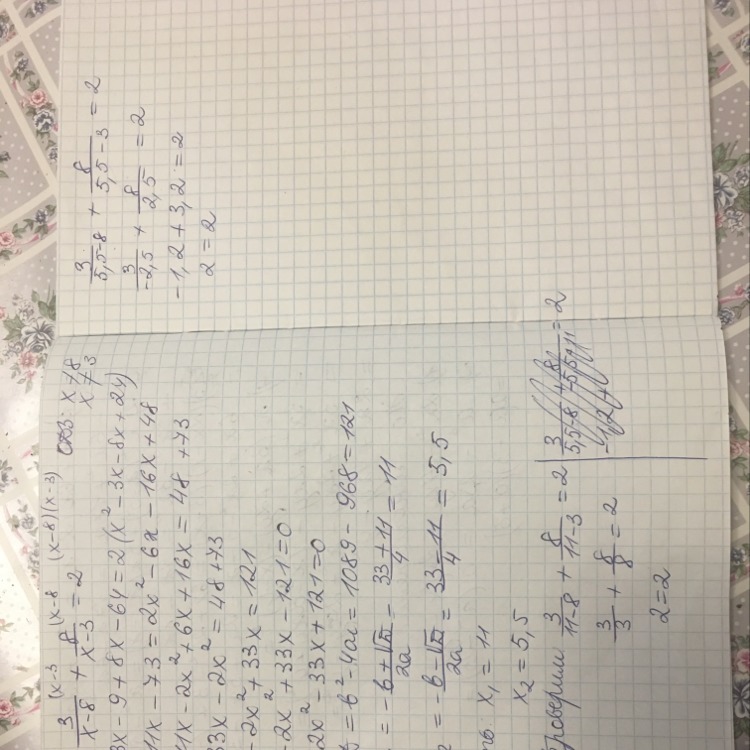 (x-3 (x-8 (x-8)(x-3)
3/(x-8) + 8/(x-3) = 2 x≠8
x≠3
3x - 9 + 8x - 64 = 2(x² - 3x - 8x + 24)
11x - 73 = 2x² - 6x - 16x + 48
11x - 2x² + 6x + 16x = 48 + 73
33x - 2x² = 48 + 73
-2x² + 33x = 121
-2x² + 33x - 121 = 0
2x² - 33x + 121 = 0
= b² - 4ac = 1089 - 968 = 121
= (-b + √D)/2a = (33 + 11)/4 = 11
= (-b - √D)/2a = (33 - 11)/4 = 5,5
x₁ = 11
x₂ = 5,5
проверим 3/(11-8) + 8/(11-3) = 2
3/3 + 8/8 = 2
2 = 2
3/(5,5-8) + 8/(5,5-3) = 2
3/(-2,5) + 8/2,5 = 2
-1,2 + 3,2 = 2
2 = 2